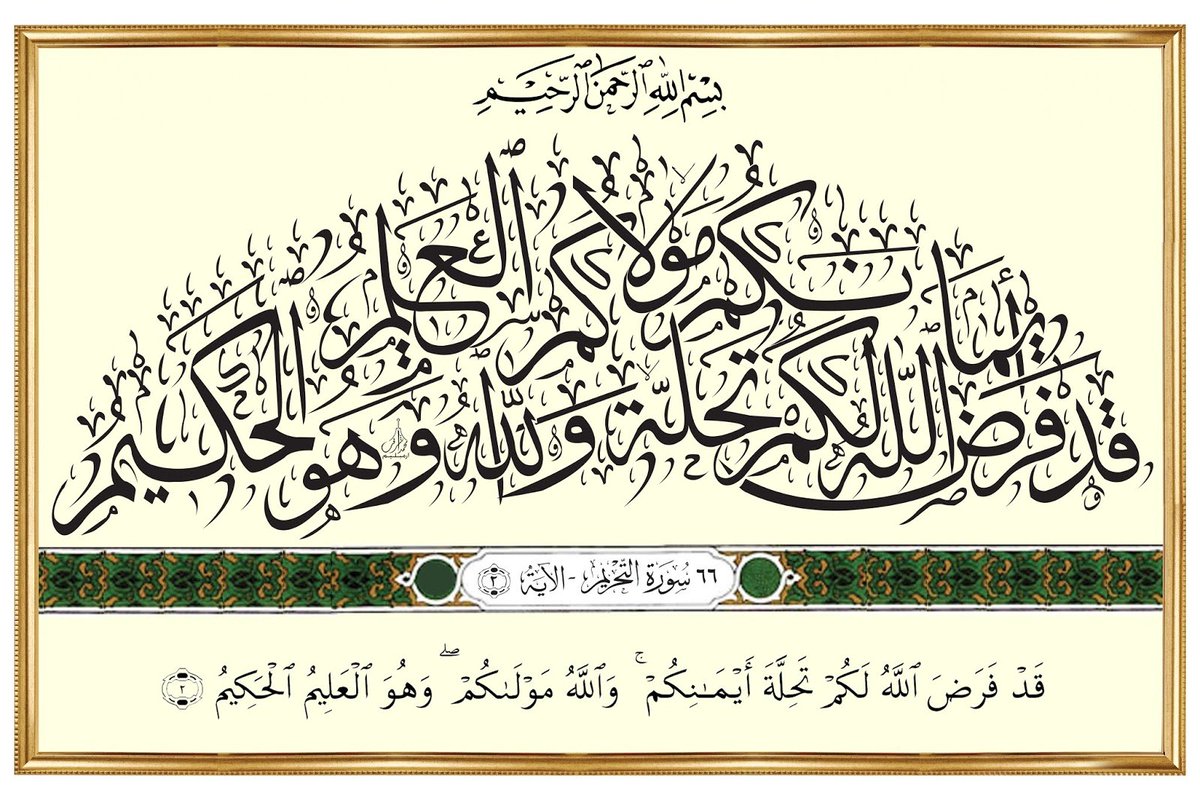 بِسْمِ ٱللَّهِ ٱلرَّحْمَٰنِ ٱلرَّحِيمِ
قد فرض الله لكم تحلة أيمانكم والله مولاكم وهو العليم الحكيم
٦٦ سُورَةُ التَّحْرِيمِ - الآيَةُ ٢
قَدْ فَرَضَ ٱللَّهُ لَكُمْ تَحِلَّةَ أَيْمَـٰنِكُمْ ۚ وَٱللَّهُ مَوْلَىٰكُمْ ۖ وَهُوَ ٱلْعَلِيمُ ٱلْحَكِيمُ ٢